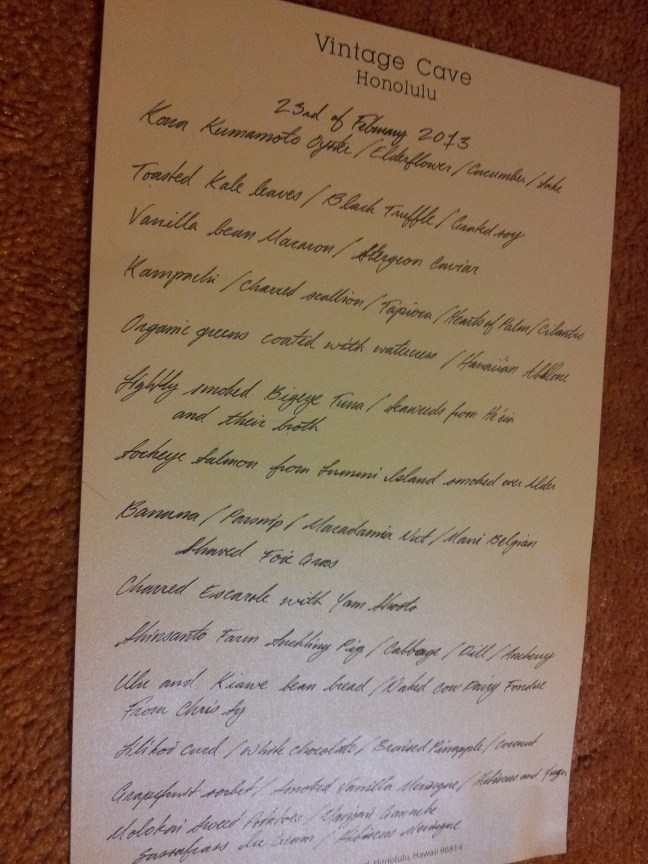 Vintage Cave
Honolulu
23rd of February 2013
Kona Kumamoto Oyster / Elderflower / Cucumber / Sake
Toasted Kale leaves / Black Truffle / soy
Vanilla bean Macaron / Sturgeon Caviar
Kampachi / Charred scallion / Tapioca / Hearts of Palm / Cilantro
Organic greens coated with watercress / Hawaiian Abalone
Lightly smoked Bigeye Tuna / Seaweeds from He'eia
and their broth
Sockeye Salmon from Lummi Island smoked over Alder
Banana / Parsnip / Macadamia Nut / Maui Belgian
Shaved Foie Gras
Charred Escarole with Yam Shoots
Shinsato Farm Suckling Pig / Cabbage / Dill / Anchovy
Ulu and Kiawe bean bread / Naked Cow Dairy Fondue
From Chris Sy
Lilikoi curd / White Chocolate / Braised Pineapple / Coconut
Grapefruit sorbet / Smoked Vanilla Meringue / Hibiscus and
Molokai Sweet Potatoes /
Sassafrass Ice Cream / Hibiscus Meringue
Honolulu, Hawaii 96814